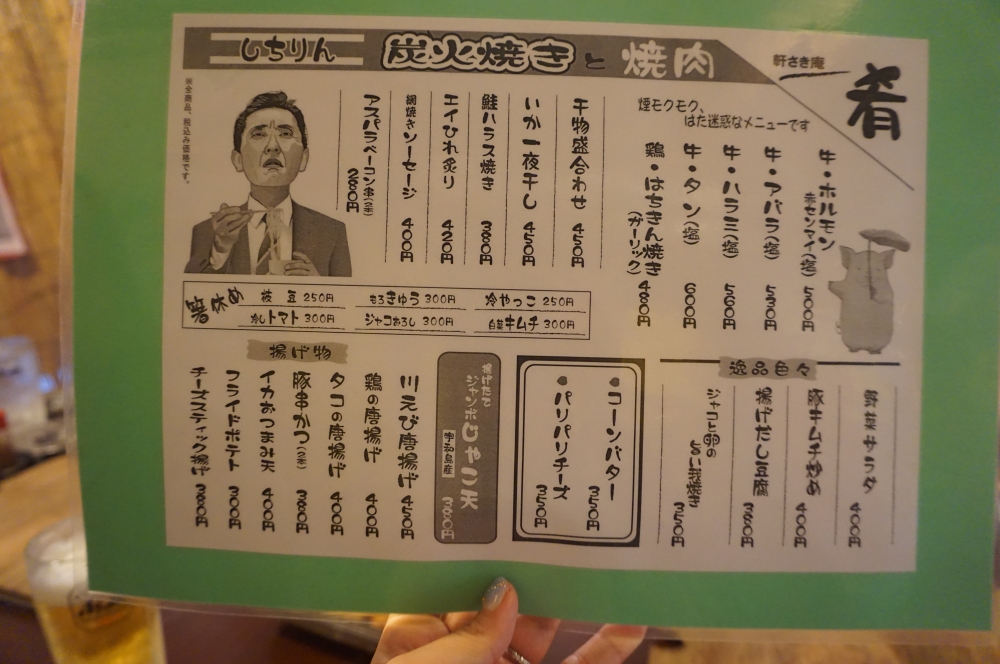 肴
軒さき庵
しちりん 炭火焼きと焼肉
煙モクモク、
はた迷惑なメニューです
牛・ホルモン
赤センマイ(塩) 500円
牛・アバラ(塩) 530円
牛・ハラミ(塩) 560円
牛・タン(塩) 600円
鶏・はちきん焼き
(ガーリック) 480円
干物盛合わせ 450円
いか一夜干し 450円
鮭ハラス焼き 380円
エイひれ炙り 420円
網焼きソーセージ 400円
アスパラベーコン串(2本) 280円
※全商品、税込み価格です。
箸休め
枝豆 250円
もろきゅう 300円
冷やっこ 250円
冷しトマト 300円
ジャコおろし 300円
白菜キムチ 300円
逸品色々
400円
豚キムチ炒め 400円
揚げだし豆腐 380円
ジャコと卵の
350円
・コーンバター 350円
・パリパリチーズ 350円
揚げたて
ジャンボじゃこ天
宇和島産 380円
揚げ物
川えび唐揚げ 450円
鶏の唐揚げ 400円
タコの唐揚げ 400円
豚串かつ(2本) 380円
イカおつまみ天 400円
フライドポテト 300円
チーズスティック揚げ 380円